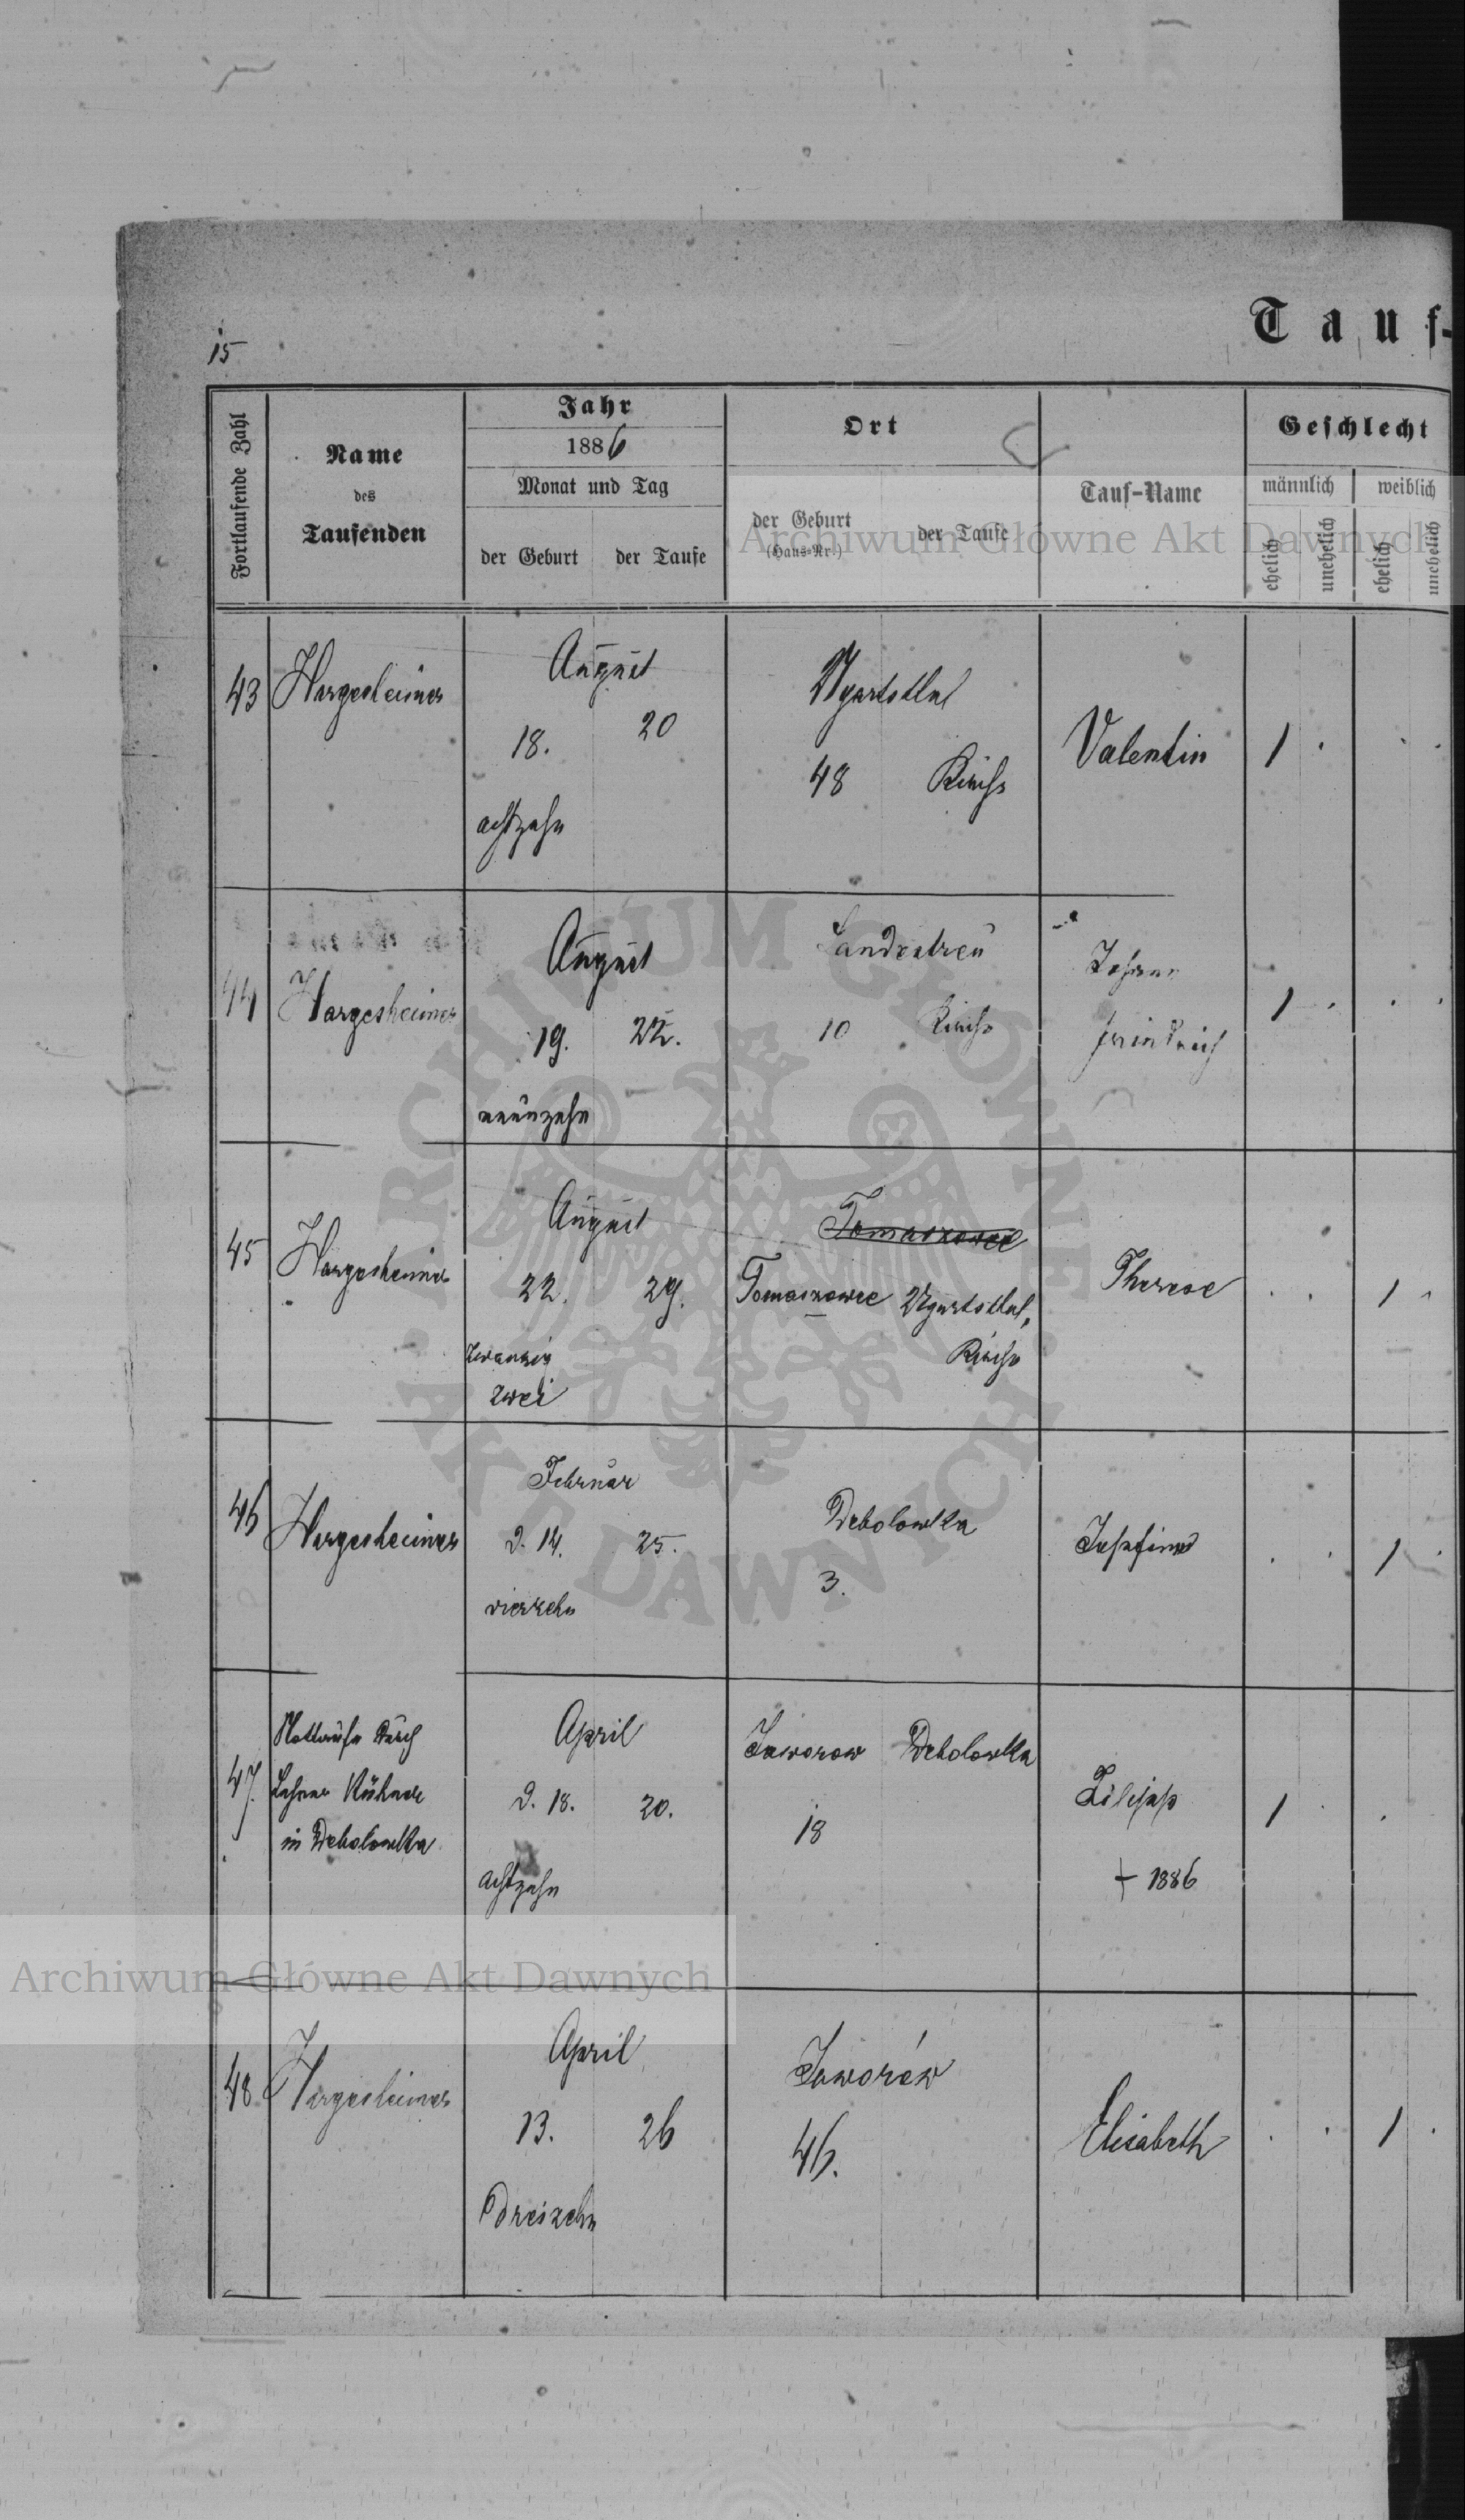 15
Tauf-
Fortlaufende Zahl
Name
des
Taufenden
Jahr
1886
Monat und Tag
der Geburt
der Taufe
Ort
der Geburt
(Haus-Nr.)
der Taufe
Tauf-Name
Geschlecht
männlich
weiblich
ehelich
unehelich
ehelich
unehelich
Archiwum Główne Akt Dawnych
43
Hargesheimer
August
18.
20
achtzehn
Ugartsthal
48
Kirche
Valentin
1
44
Hargesheimer
August
19.
22.
neunzehn
Landestreu
10
Kirche
Johann
Heinrich
1
45
Hargesheimer
August
22.
29.
zwanzig
zwei
Tomaszowce
Tomaszowce
Ugartsthal,
Kirche
Therese
1
46
Hargesheimer
Februar
d. 14.
25.
vierzehn
Debolowka
3.
Josefine
1
47.
Nottaufe durch
Lehrer
in Debolowka
April
d. 18.
20.
achtzehn
Jaworow
Debolowka
18
Filipp
† 1886
1
48
Hargesheimer
April
13.
26
Dreizehn
Jaworów
46.
Elisabeth
1
ARCHIWUM GŁÓWNE
AKT DAWNYCH
Archiwum Główne Akt Dawnych